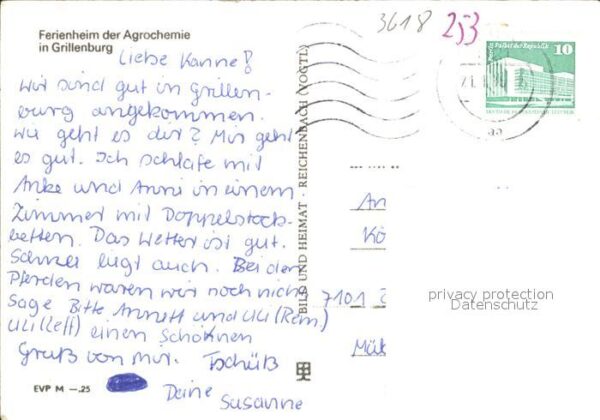 Ferienheim der Agrochemie
in Grillenburg
Liebe Kanne!
Wir sind gut in Grillen-
burg angekommen.
Wie geht es dir? Mir geht
es gut. Ich schlafe mit
Anke und Anni in einem
Zimmer mit Doppelstock-
betten. Das Wetter ist gut.
Schnee liegt auch. Bei den
Pferden waren wir noch nicht
Sage Bitte Annett und Uli (Rem.)
Uli (Leff) einen schönen
Gruß von mir. Tschüß
Deine
Susanne
EVP M —.25
BILD UND HEIMAT · REICHENBACH (VOGTL)
3618
253
Palast der Republik
10
An
Kö
7101
privacy protection
Datenschutz